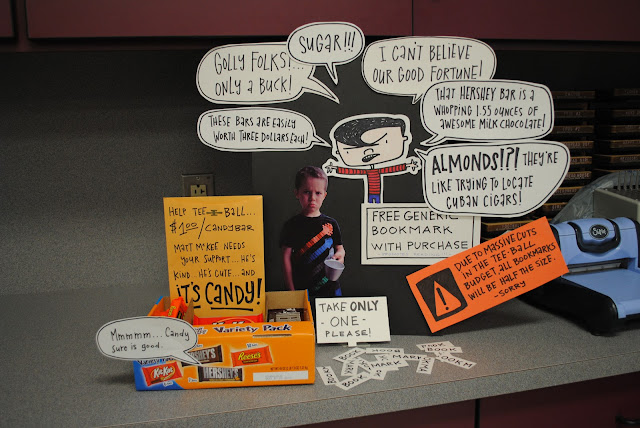 GOLLY FOLKS!...
ONLY A BUCK!
SUGAR!!!
I CAN'T BELIEVE
OUR GOOD FORTUNE!
THESE BARS ARE EASILY
WORTH THREE DOLLARS EACH!
THAT HERSHEY BAR IS A
WHOPPING 1.55 OUNCES OF
AWESOME MILK CHOCOLATE!
ALMONDS!?! THEY'RE
LIKE TRYING TO LOCATE
CUBAN CIGARS!
HELP TEE-BALL....
$1.00/CANDYBAR
MATT MCKEE NEEDS
YOUR SUPPORT... HE'S
KIND... HE'S CUTE... AND
IT'S CANDY!
FREE GENERIC
BOOKMARK
WITH PURCHASE
DUE TO MASSIVE CUTS
IN THE TEE-BALL
BUDGET, ALL BOOKMARKS
WILL BE HALF THE SIZE.
-SORRY
TAKE ONLY
- ONE -
PLEASE!
Mmmmmm.... Candy
sure is good.
Variety Pack
Variety Pack
KitKat
HERSHEY'S
Reese's
KitKat
HERSHEY'S
BOOK
MARK
Sizzix